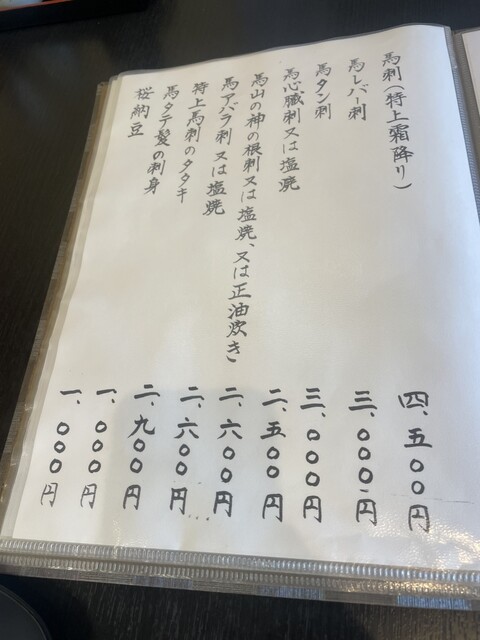 馬刺(特上霜降り)
四、五〇〇円
馬レバー刺
三、〇〇〇円
馬タン刺
三、〇〇〇円
馬心臓刺又は塩焼
二、五〇〇円
馬山の神の根刺又は塩焼、又は正油炊き
二、六〇〇円
馬アバラ刺又は塩焼
二、六〇〇円
特上馬刺のタタキ
二、九〇〇円
馬タテ髪の刺身
一、〇〇〇円
桜納豆
一、〇〇〇円